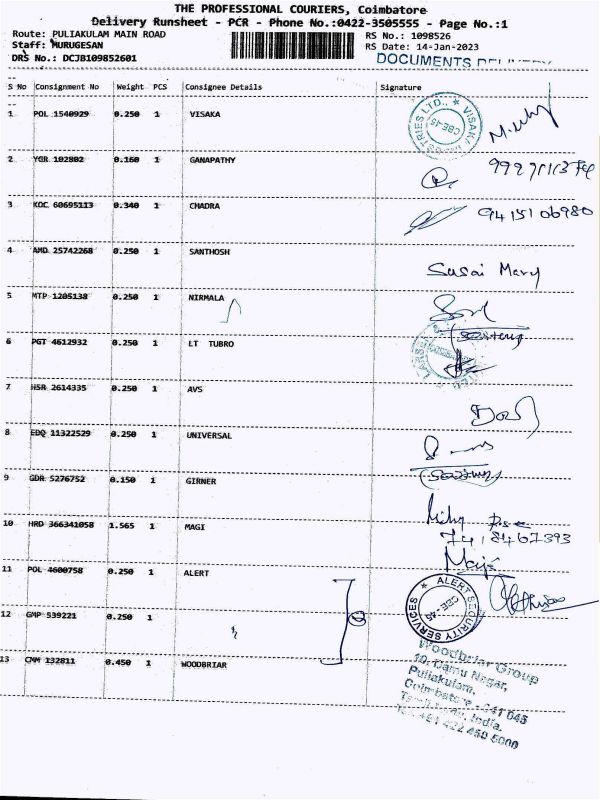 THE PROFESSIONAL COURIERS, Coimbatore
Delivery Runsheet - PCR - Phone No.:0422-3505555 - Page No.:1
Route: PULIAKULAM MAIN ROAD RS No.: 1098526
Staff: MURUGESAN RS Date: 14-Jan-2023
DRS No.: DCJB109852601 DOCUMENTS DELIVERY
S No Consignment No Weight PCS Consignee Details Signature
1 POL 1540929 0.250 1 VISAKA
VISAKA INDUSTRIES LTD., CBE-45
2 YGR 102802 0.160 1 GANAPATHY
3 KOC 60695113 0.340 1 CHADRA 9415106980
4 AMD 25742268 0.250 1 SANTHOSH Susai Mary
5 MTP 1205138 0.250 1 NIRMALA
6 PGT 4612932 0.250 1 LT TUBRO
7 HSR 2614335 0.250 1 AVS
8 EDQ 11322529 0.250 1 UNIVERSAL
9 GDR 5276752 0.150 1 GIRNER
10 HRD 366341058 1.565 1 MAGI 7418467393
11 POL 4600758 0.250 1 ALERT
ALERT SECURITY SERVICES CBE-45
12 GMP 539221 0.250 1
13 CMM 132811 0.450 1 WOODBRIAR
Woodbriar Group
10, Damu Nagar,
Puliakulam,
Coimbatore - 641 045
Tamil Nadu, India.
Tel: +91 422 450 5000